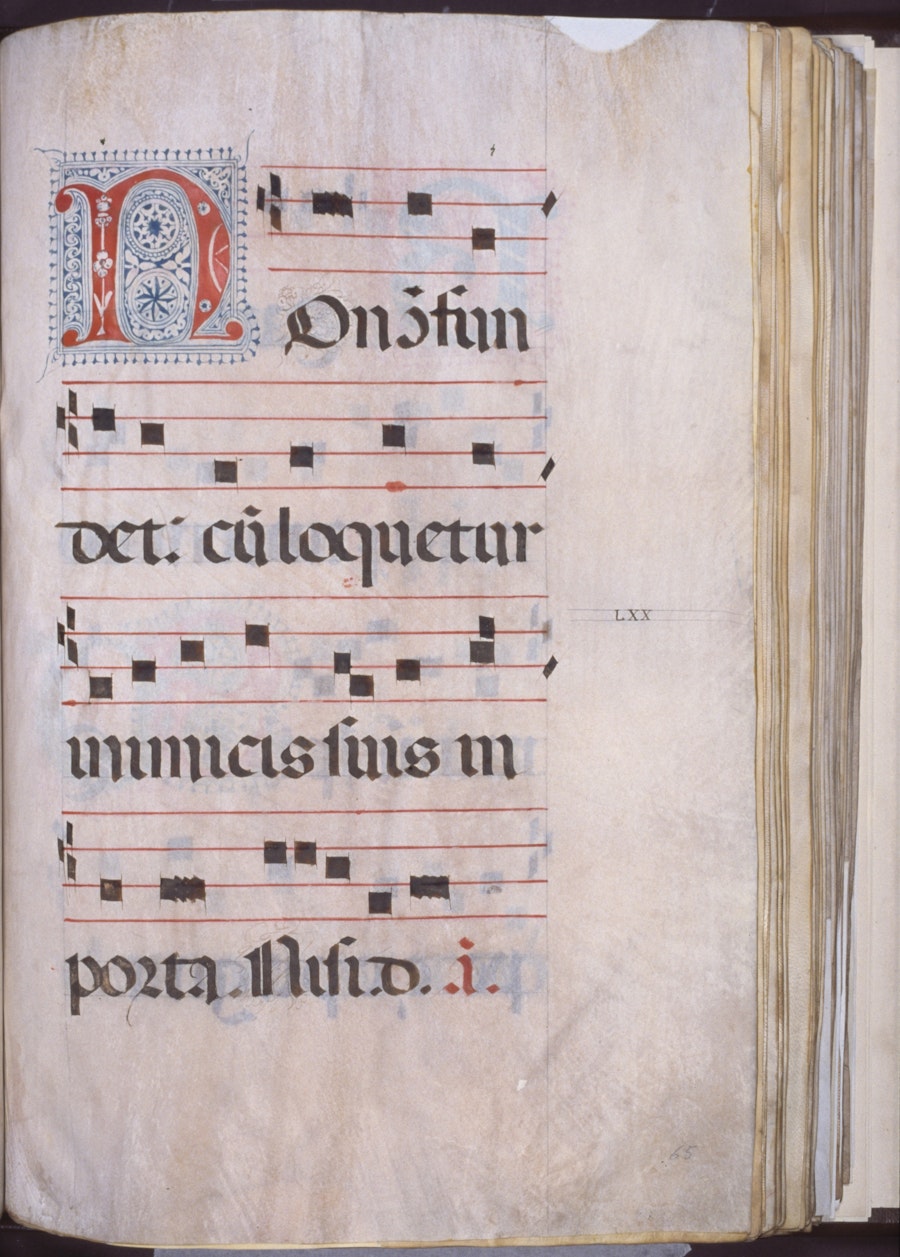 NOn ɔ̄fun
det: cū loquetur
LXX
inimicis ſuis in
porta. Niſi.d. .i.
65